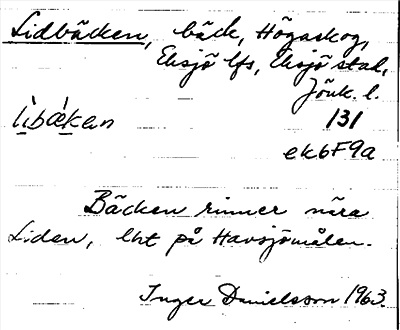 Lidbäcken, bäck, Högaskog,
Eksjö lfs, Eksjö stad,
Jönk. l.
lìbækan 131
ek6F9a
Bäcken rinner nära
Liden, lht på Havsjömålen.
Inger Danielsson 1963.